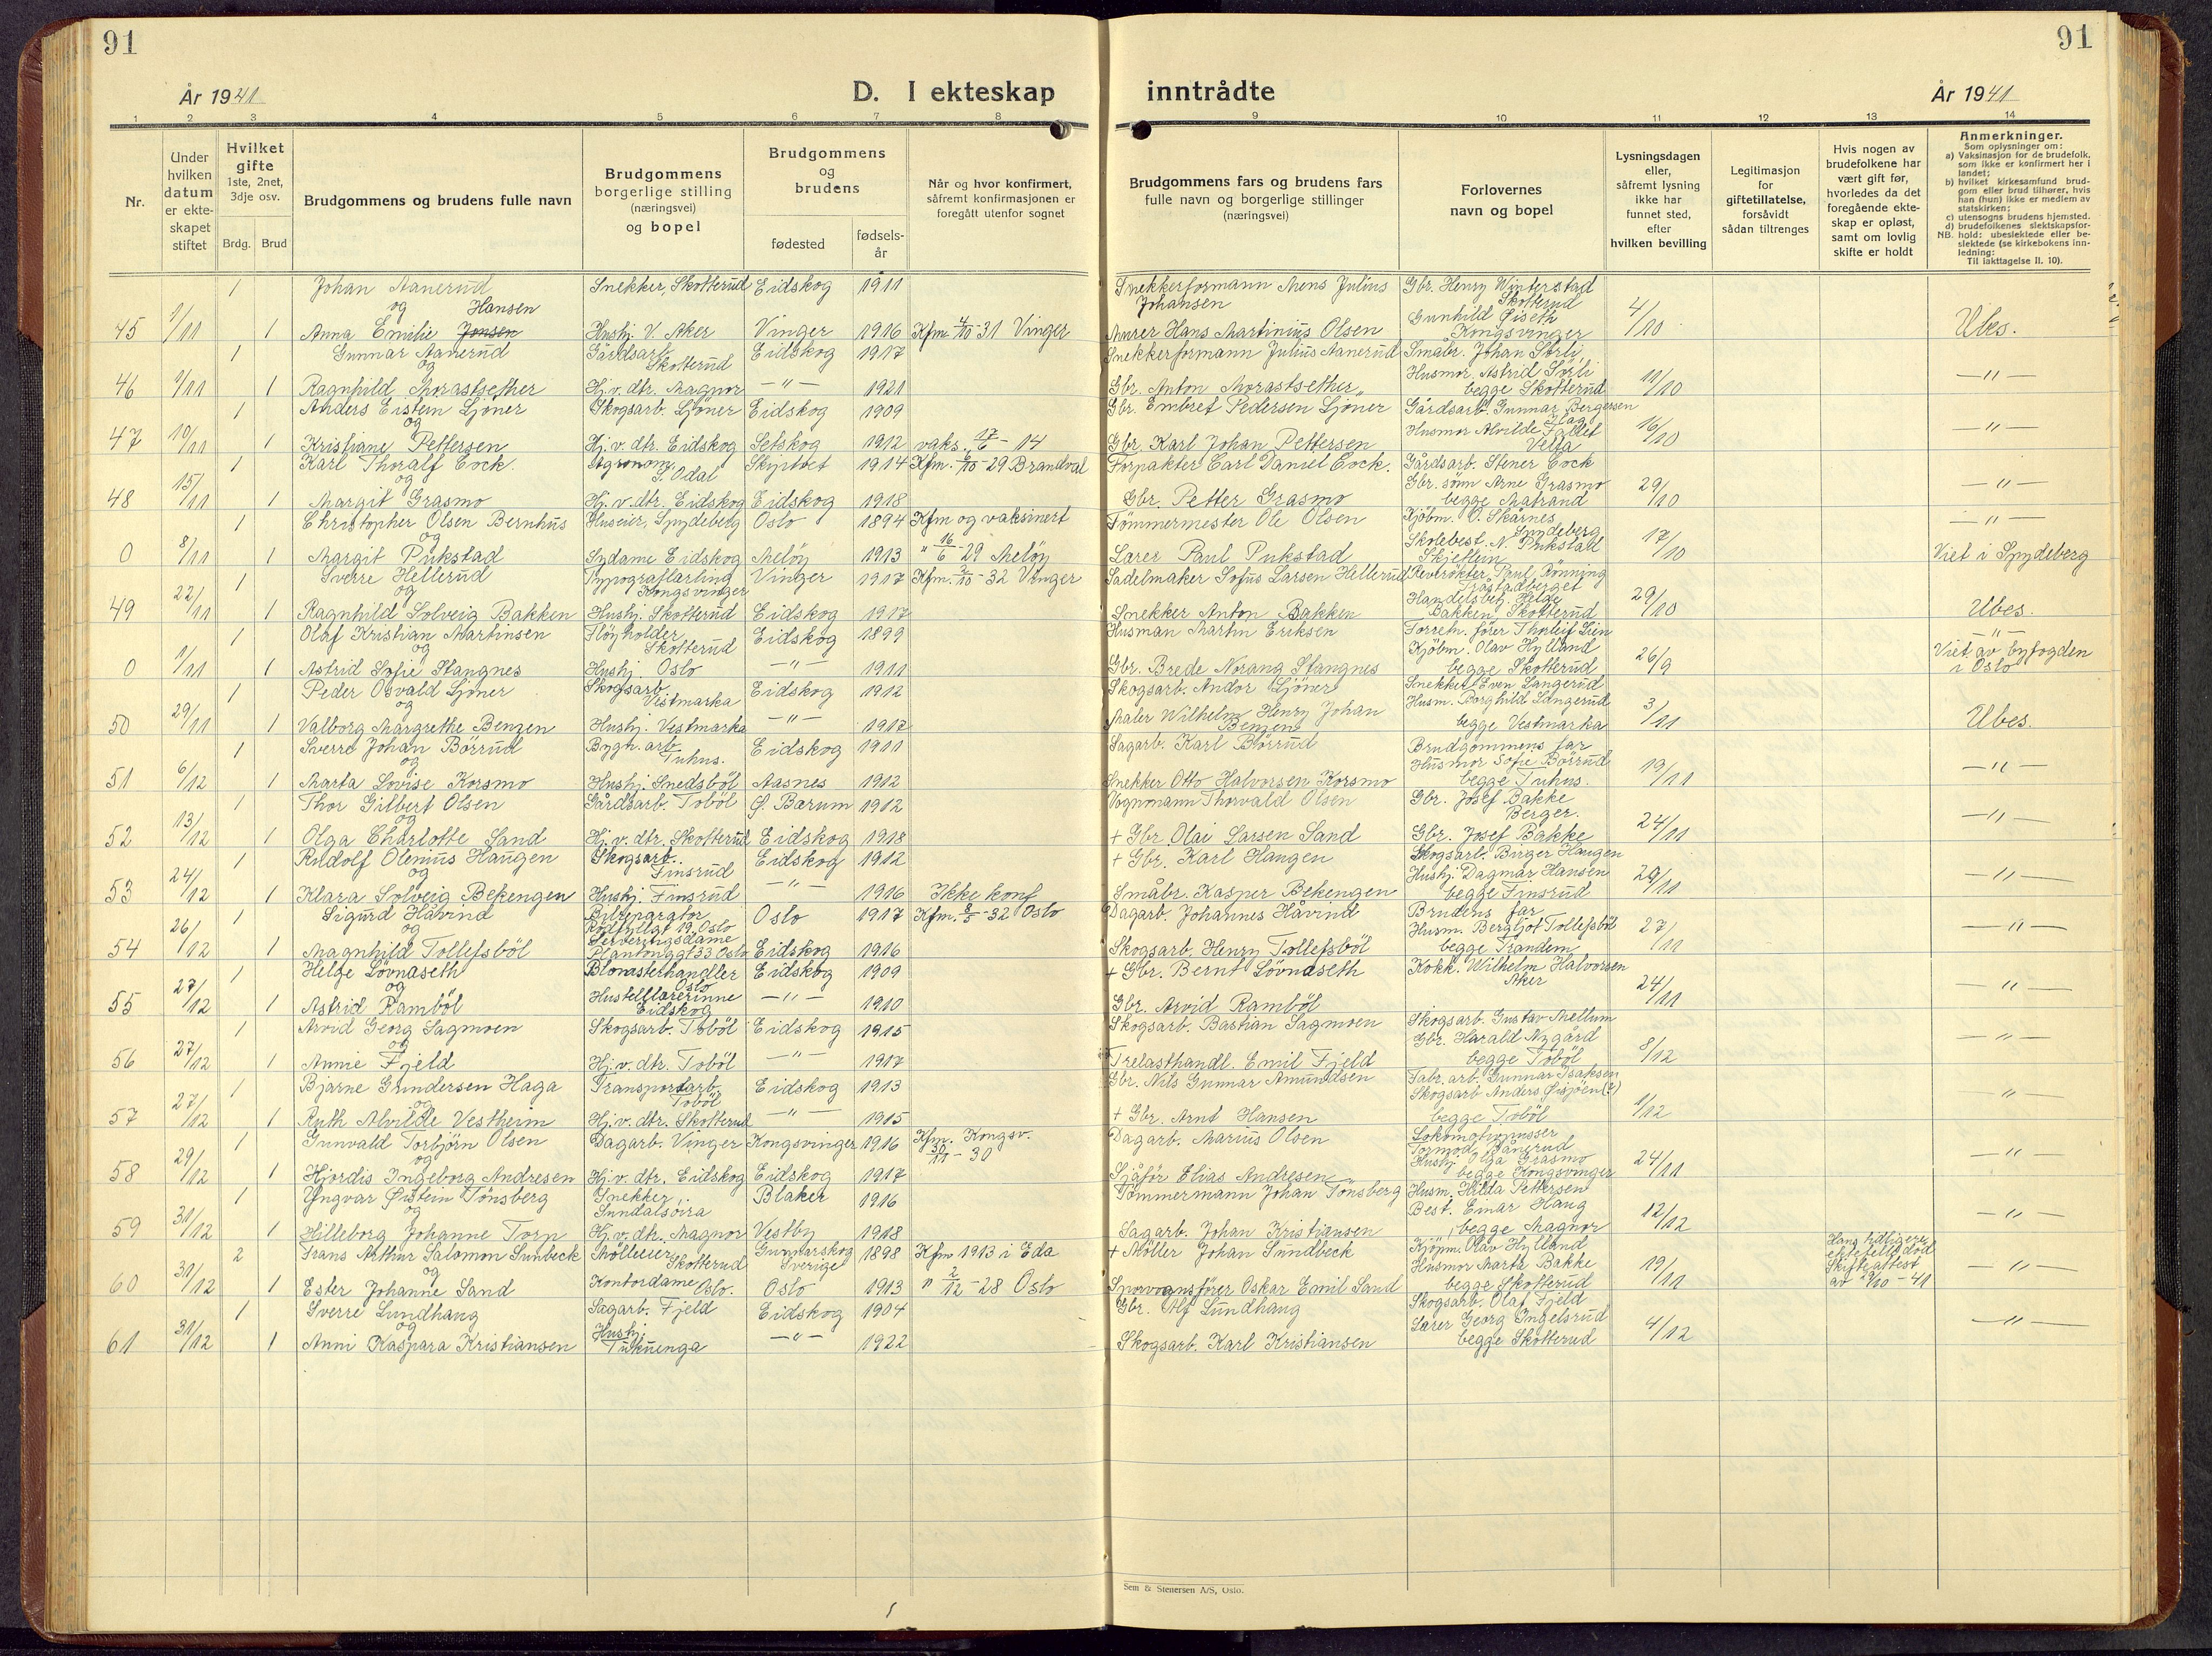 91
91
År 1941
D. I ekteskap
inntrådte
År 1941
1 2 3 4 5 6 7 8 9 10 11 12 13 14
Nr.
Under hvilken datum er ekteskapet stiftet
Hvilket gifte 1ste, 2net, 3dje osv.
Brdg. Brud
Brudgommens og brudens fulle navn
Brudgommens borgerlige stilling (næringsvei) og bopel
Brudgommens og brudens
fødested
fødselsår
Når og hvor konfirmert, såfremt konfirmasjonen er foregått utenfor sognet
Brudgommens fars og brudens fars fulle navn og borgerlige stillinger (næringsvei)
Forlovernes navn og bopel
Lysningsdagen eller, såfremt lysning ikke har funnet sted, efter hvilken bevilling
Legitimasjon for giftetillatelse, forsåvidt sådan tiltrenges
Hvis nogen av brudefolkene har vært gift før, hvorledes da det foregående ekteskap er opløst, samt om lovlig skifte er holdt
Anmerkninger.
Som oplysninger om:
a) Vaksinasjon for de brudefolk, som ikke er konfirmert her i landet;
b) hvilket kirkesamfund brudgom eller brud tilhører, hvis han (hun) ikke er medlem av statskirken;
c) utensogns brudens hjemsted.
d) brudefolkenes slektskapsforhold: ubeslektede eller beslektede (se kirkebokens innledning:
NB. Til iakttagelse II. 10).
1 Johan Aanerud Snekker, Skotterud Eidskog 1911 Snekkerformann Mens Julius Johansen Gbr. Henry Winterstad Skotterud
og Hansen
45 1/11 1 Anna Emilie Jonsen Hushj. V. Aker Vinger 1916 Kfm. 4/10-31 Vinger Murer Hans Martinius Olsen Gunhild Øiseth Kongsvinger 4/10 Ubes.
1 Gunnar Aanerud Gårdsarb. Skotterud Eidskog 1917 Snekkerformann Julius Aanerud Småbr. Johan Sørli,
og
46 1/11 1 Ragnhild Morastsether Hj.v. dtr. Magnor —"— 1921 Gbr. Anton Morastsether Husmor. Astrid Sørli begge Skotterud 11/10 —"—
1 Anders Eistein Ljöner Skogsarb. Ljöner Eidskog 1909 Gbr. Embret Pedersen Ljöner Gårdsarb. Gunnar Bergersen
og
47 10/11 1 Kristiane Pettersen Hj.v. dtr. Eidskog Setskog 1912 vaks. 17/6-14 Gbr. Karl Johan Pettersen Husmor Alvilde 16/10 —"—
1 Karl Thoralf Cock. Agronom S. Odal 1914 Kfm. 6/10-29 Brandval Forpakter Carl Daniel Cock. Gårdsarb. Stener Cock
og
48 15/11 1 Margit Grasmo Hj.v. dtr. Eidskog Eidskog 1918 Gbr. Petter Grasmo Gbr. sønn Arne Grasmo begge Matrand 29/10 —"—
1 Christopher Olsen Bernhus Huseier, Spydeberg Oslo 1894 Kfm og vaksinert Tömmermester Ole Olsen Kjöbm. O. Skarnes Spydeberg —"—
og
0 8/11 1 Margit Pukstad Sydame Eidskog Meløy 1913 " 16/6-29 Meløy Lærer Paul Pukstad Skolebest. N. Pukstad Skjetlein 17/10 Viet i Spydeberg
1 Sverre Hellerud Typograflærling Kongsvinger Vinger 1917 Kfm. 2/10-32 Vinger Sadelmaker Sofus Larsen Hellerud Revrøkter Paul Rønning
og
49 22/11 1 Ragnhild Solveig Bakken Hushj. Skotterud Eidskog 1917 Snekker Anton Bakken Handelsbetj. Helge Bakken, Skotterud 29/10 Ubes.
1 Olaf Kristian Martinsen Skotterud Eidskog 1899 Husman Martin Eriksen Forretn. fører Tholeif Lien —"—
og
0 1/11 1 Astrid Sofie Stangnes Hushj. Oslo —"— 1911 Gbr. Brede Norang Stangnes Kjöbm. Olav Hylland begge Skotterud 26/9 Viet av byfogden i Oslo
1 Peder Osvald Ljöner Skogsarb. Vestmarka Eidskog 1912 Skogsarb. Andor Ljöner Snekker Even Langerud
og
50 29/11 1 Valborg Margrethe Benzen Hushj. Vestmarka —"— 1917 Maler Wilhelm Henry Johan Benzen Husm. Borghild Langerud begge Vestmarka 3/11 Ubes.
1 Sverre Johan Börrud Bygn. arb. Tuhus. Eidskog 1911 Sagarb. Karl Börrud Brudgommens far
og
51 6/12 1 Marta Lovise Korsmo Hushj. Snedsböl Aasnes 1912 Snekker Otto Halvorsen Korsmo Husmor Sofie Börrud begge Tuhus. 19/11 —"—
1 Thor Gilbert Olsen Gårdsarb. Toböl Ø. Bærum 1912 Vognmann Thorvald Olsen Gbr. Josef Bakke Berger.
og
52 13/12 1 Olga Charlotte Sand Hj.v. dtr. Skotterud Eidskog 1918 + Gbr. Olai Larsen Sand Gbr. Josef Bakke 24/11 —"—
1 Rudolf Olenius Haugen Skogsarb. Finsrud Eidskog 1912 + Gbr. Karl Haugen Skogsarb. Birger Haugen
og
53 24/12 1 Klara Solveig Bekengen Hushj. Finsrud —"— 1916 Ikke konf Småbr. Kasper Bekengen Hushj. Dagmar Hansen begge Finsrud 29/11 —"—
1 Sigurd Håvind Bilreparatør Rödfyllgt 19, Oslo Oslo 1917 Kfm. 8/5-32 Oslo Dagarb. Johannes Håvind Brudens far
og
54 26/12 1 Magnhild Tollefsböl Serveringsdame Plantinggt 33 Oslo Eidskog 1916 Skogsarb. Henry Tollefsböl Husm. Bergljot Tollefsböl begge Trandem 27/11 —"—
1 Helge Lövnaseth Blomsterhandler Oslo Eidskog 1909 + Gbr. Bernt Lövnaseth Kokk. Wilhelm Halvorsen Aker
og
55 27/12 1 Astrid Ramböl Hustellærerinne Eidskog —"— 1910 Gbr. Arvid Ramböl 24/11 —"—
1 Arvid Georg Sagmoen Skogsarb. Toböl Eidskog 1915 Skogsarb. Bastian Sagmoen Skogsarb. Gustav Mellum
og
56 27/12 1 Annie Fjeld Hj.v. dtr. Toböl —"— 1917 Trelasthandl. Emil Fjeld Gbr. Harald Nygård begge Toböl 8/12 —"—
1 Bjarne Gundersen Haga Transportarb. Toböl Eidskog 1913 Gbr. Nils Gunnar Amundsen Fabr. arb. Gunnar Isaksen
og
57 27/12 1 Ruth Alvilde Vestheim Hj.v. dtr. Skotterud —"— 1915 + Gbr. Arnt Hansen Skogsarb Anders Øisjøen(?) begge Toböl 1/12 —"—
1 Gunvald Torbjörn Olsen Dagarb. Vinger Kongsvinger 1916 Kfm. Kongsv. 30/11-30 Dagarb. Marius Olsen Lokomotivpusser Tormod
og
58 29/12 1 Hjördis Ingeborg Andresen Hj.v. dtr. Eidskog Eidskog 1917 Sjåför Elias Andresen Hushj. Olga Grasmo begge Kongsvinger 24/11 —"—
1 Yngvar Øistein Tönsberg Snekker, Sundalsöra Blaker 1916 Tömmermann Johan Tönsberg Husm. Hilda Pettersen
og
59 31/12 1 Hilleborg Johanne Torp Hj.v. dtr. Magnor Vestby 1918 Sagarb. Johan Kristiansen Best. Einar Haug begge Magnor 12/12 —"—
2 Frans Arthur Salomon Sunbeck Mölleuer Skotterud Gunnarskog Sverige 1898 Kfm 1913 i Eda + Möller Johan Sundbeck Kjöpm. Olav Hylland Hans tidligere ektefelle död Skifteattest av 29/10-41
og
60 31/12 1 Ester Johanne Sand Kontordame Oslo. Oslo 1913 " 2/12-28 Oslo Sporvognsfører Oskar Emil Sand Husmor Marta Bakke begge Skotterud 19/11 —"—
1 Sverre Lundhaug Sagarb. Fjeld Eidskog 1904 Gbr. Alf Lundhaug Skogsarb. Olaf Fjeld
og
61 31/12 1 Anni Kaspara Kristiansen Hushj. —"— 1922 Skogsarb. Karl Kristiansen Lærer Georg Ingelsrud begge Skotterud 4/12 —"—
Sem & Stenersen A/S, Oslo.